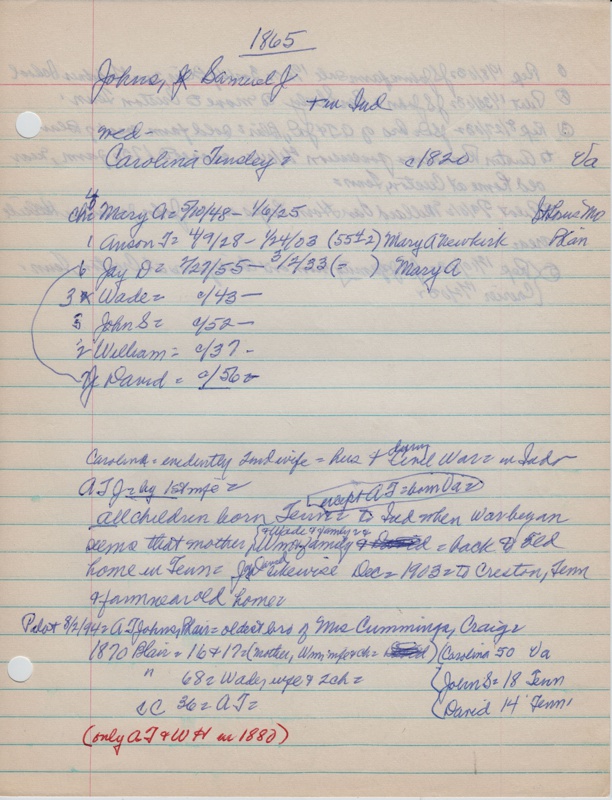 1865
Johns, Samuel J.
+ in Ind
med-
Carolina Tinsley = c1820 Va
4
ch= Mary A = 5/10/48 - 1/6/25 St Louis Mo
1 Anson T = 4/9/28 - 1/24/03 (55±2) Mary A Newkirk Plan
6 Jay D = 2/27/55 - 3/2/33 (= ) Mary A
3 Wade = c/43 -
5 John S = c/52 -
2 William = c/37 -
7 David = c/56 =
Carolina = evidently 2nd wife = hus + during Civil War = in Ind
A T J = by 1st wife =
except A T = born Va =
all children born Tenn = to Ind when War began
+ Wade + family
seems that mother, Wm + family = back to old
home in Tenn = Jay and likewise Dec = 1903 = to Creston, Tenn
+ farm near old home =
Pilot 8/2/94 = A T Johns, Blair = oldest bro of Mrs Cummings, Craig =
1870 Blair = 16 + 17 = (mother, Wm, wife + ch = ) (Carolina 50 Va
" 68 = Wade, wife + 2 ch = John S = 18 Tenn
CC 36 = A T = David 14 Tenn
(only A T + W H in 1880)